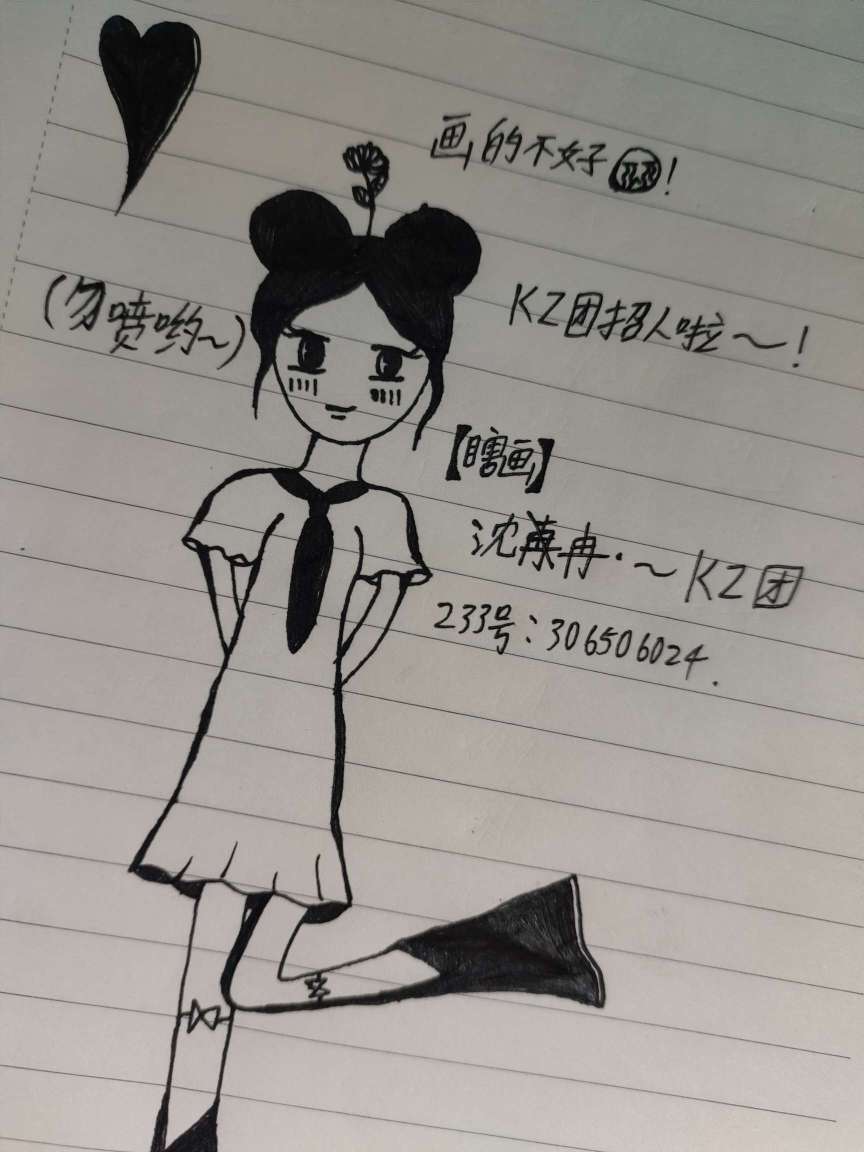 画的不好!
(勿喷哟~)
KZ团招人啦~!
【瞎画】
沈苒冉·~KZ团
233号:306506024.